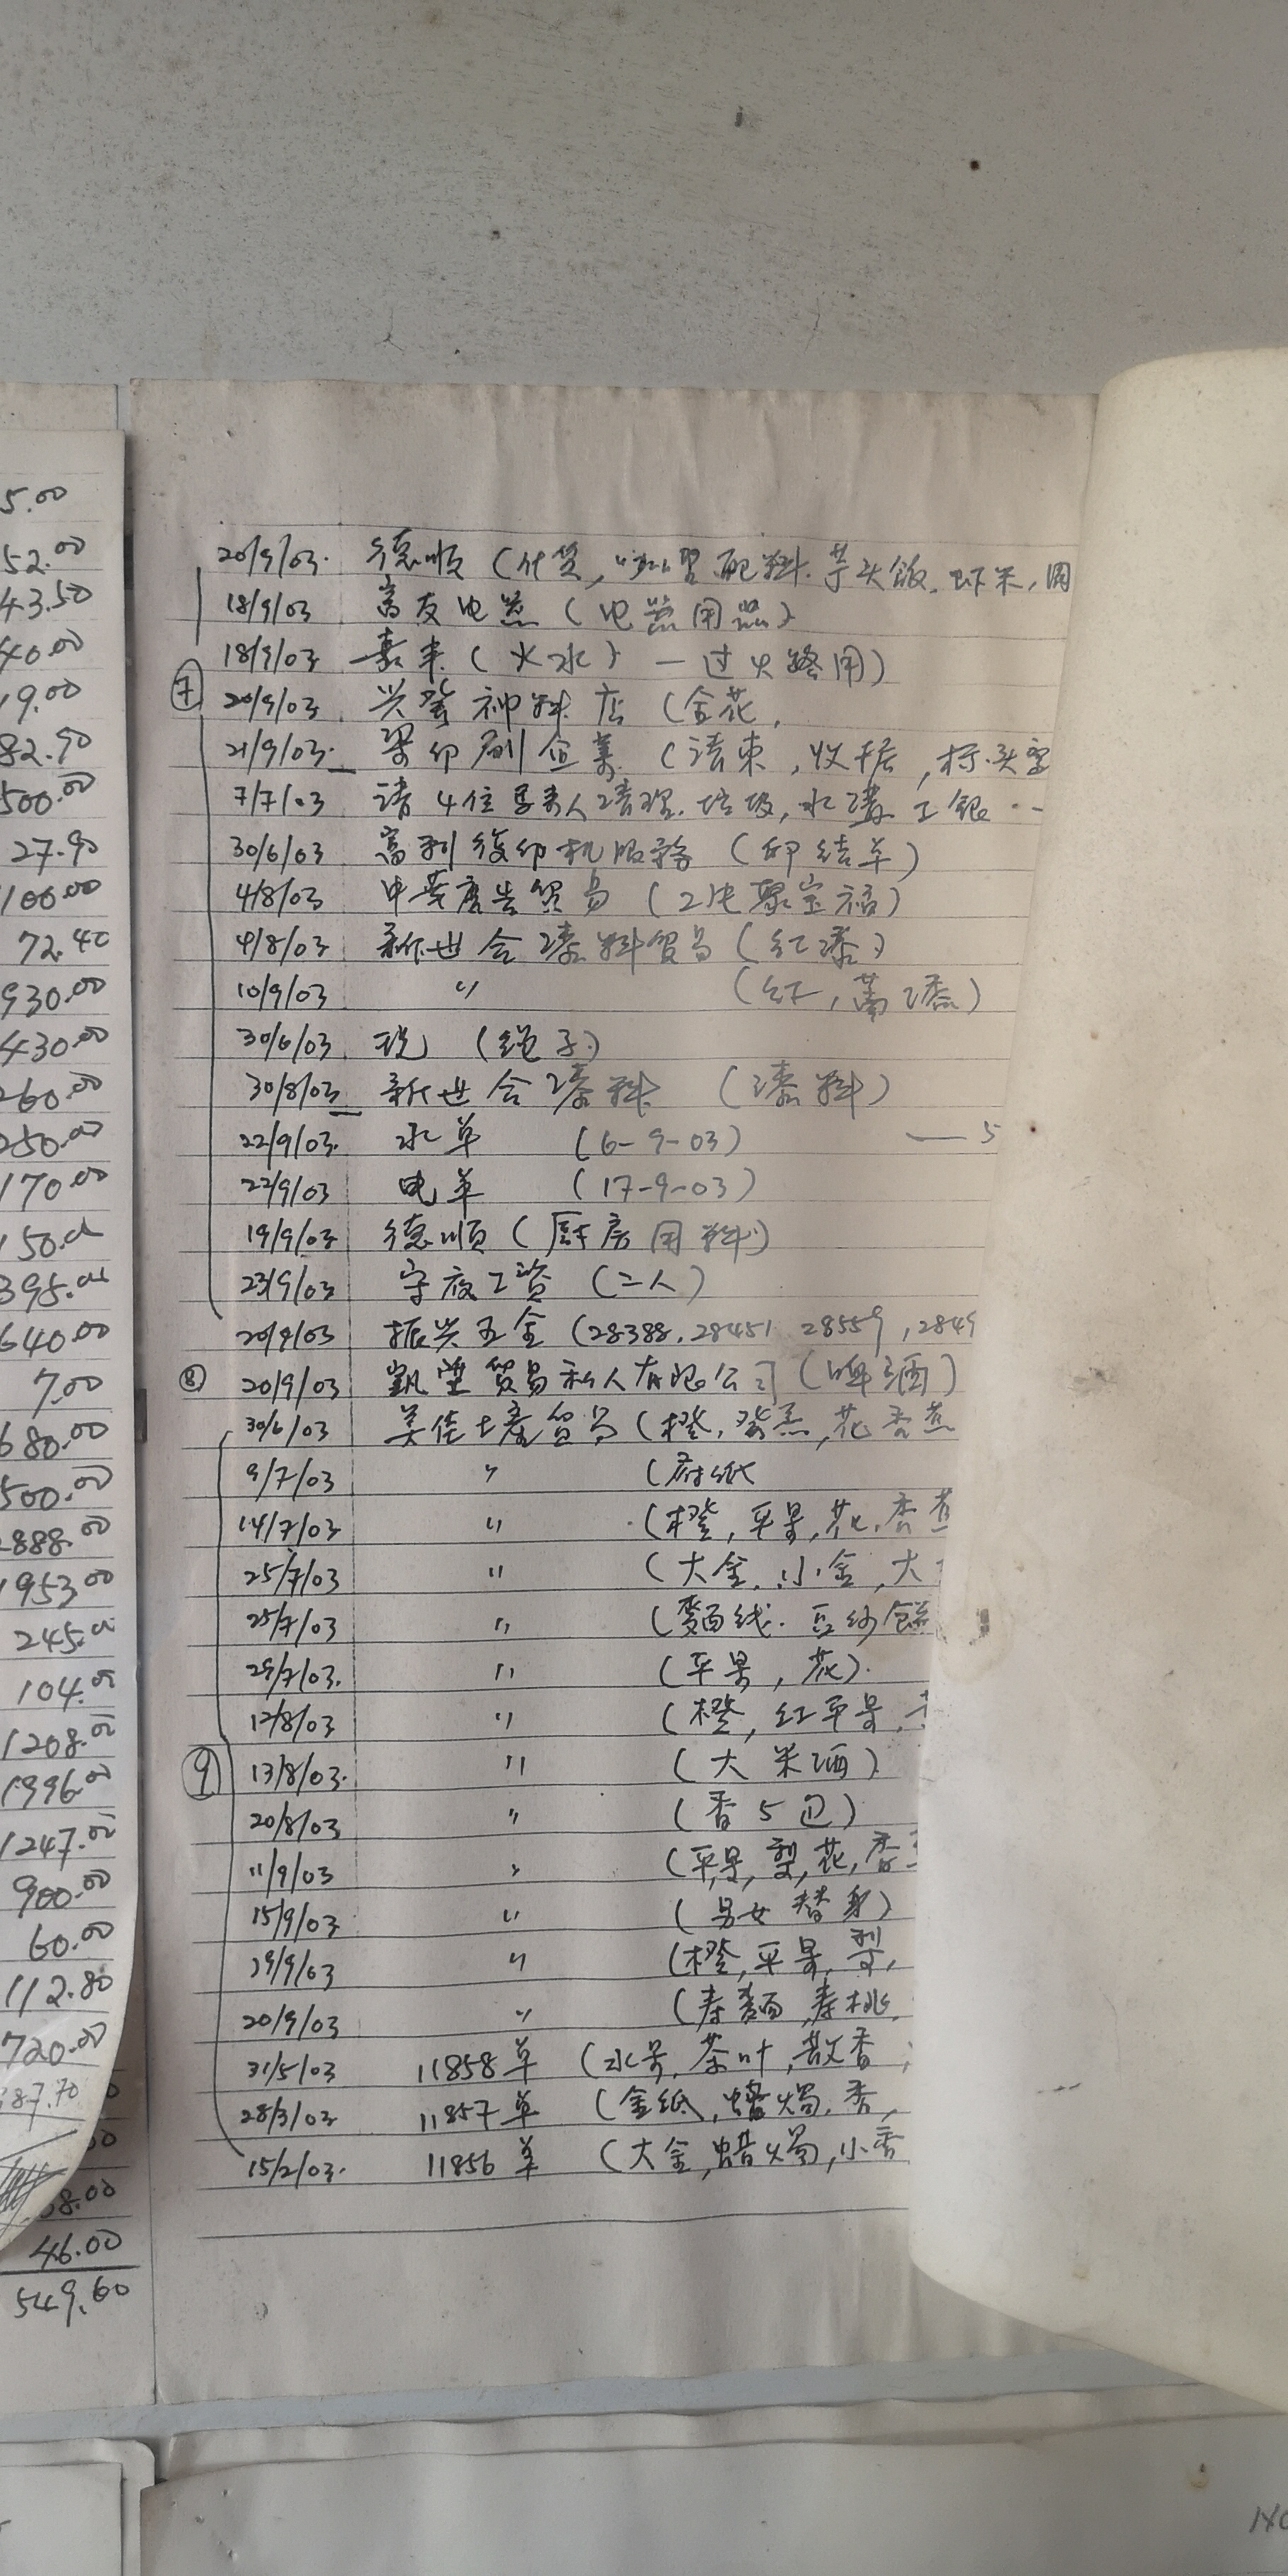 5.00
52.00
43.50
40.00
19.00
82.90
500.00
27.90
100.00
72.40
930.00
430.00
260.00
250.00
170.00
150.00
395.00
640.00
7.00
680.00
500.00
2888.00
1953.00
245.00
104.00
1208.00
1996.00
1247.00
900.00
60.00
112.80
720.00
187.70
8.00
46.00
549.60
20/9/03. 德顺 (什货, 配料. 芋头饭. 虾米,
18/9/03 高友电器 (电器用器)
18/9/03 (火水) — 过火路用)
⑦ 20/9/03 兴发神料店 (金花,
21/9/03 印刷企业 (请柬, 收据,
7/7/03 请4位 人清理. 垃圾, 水沟 工银
30/6/03 高利复印机服务 (印结单)
4/8/03 中英广告贸易 (
4/8/03 新世合漆料贸易 (红漆)
10/9/03 〃 (红, 漆)
30/6/03 (绳子)
30/8/03 新世合漆料 (漆料)
22/9/03. 水单 (6-9-03) — 5
22/9/03 电单 (17-9-03)
19/9/03 德顺 (厨房用料)
23/9/03 守夜工资 (二人)
20/9/03 振兴五金 (28388, 28451 28559, 2849
⑧ 20/9/03 贸易私人有限公司 (啤酒)
30/6/03 美佳土产贸易 (橙, 花 香蕉
9/7/03 〃 (符纸
14/7/03 〃 (橙, 平果, 花, 香蕉
25/7/03 〃 (大金, 小金, 大
25/7/03 〃 (麵线. 豆纱餅
29/7/03. 〃 (平果, 花).
12/8/03 〃 (橙, 红平果,
⑨ 13/8/03. 〃 (大米酒)
20/8/03 〃 (香5包)
11/9/03 〃 (平果, 梨, 花, 香
15/9/03 〃 (男女替身)
19/9/03 〃 (橙, 平果, 梨,
20/9/03 〃 (寿麵, 寿桃,
31/5/03 11858单 (水果, 茶叶, 散香,
28/3/03 11857单 (金纸, 蜡烛, 香,
15/2/03. 11856单 (大金, 蜡烛, 小香